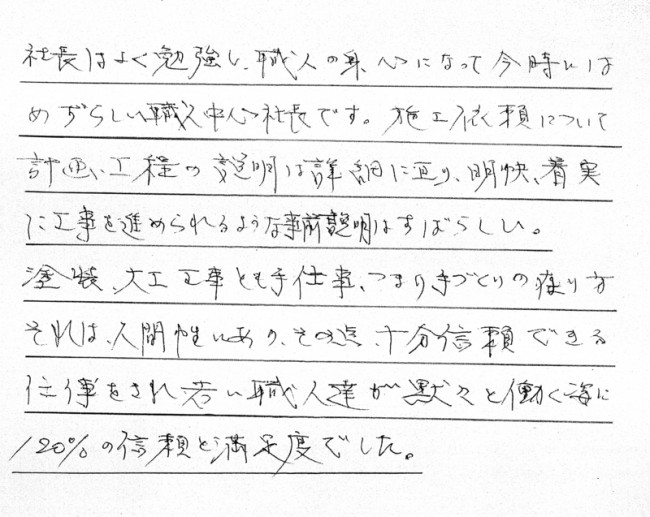 社長はよく勉強し、職人の身、心になって今時には
めずらしい職人中心社長です。施工依頼について
計画、工程の説明は詳細に亘り、明快、着実
に工事を進められるような事前説明はすばらしい。
塗装、大工工事とも手仕事、つまり手づくりの在り方
それは、人間性にあり、その点、十分信頼できる
仕事をされ若い職人達が黙々と働く姿に
120%の信頼と満足度でした。